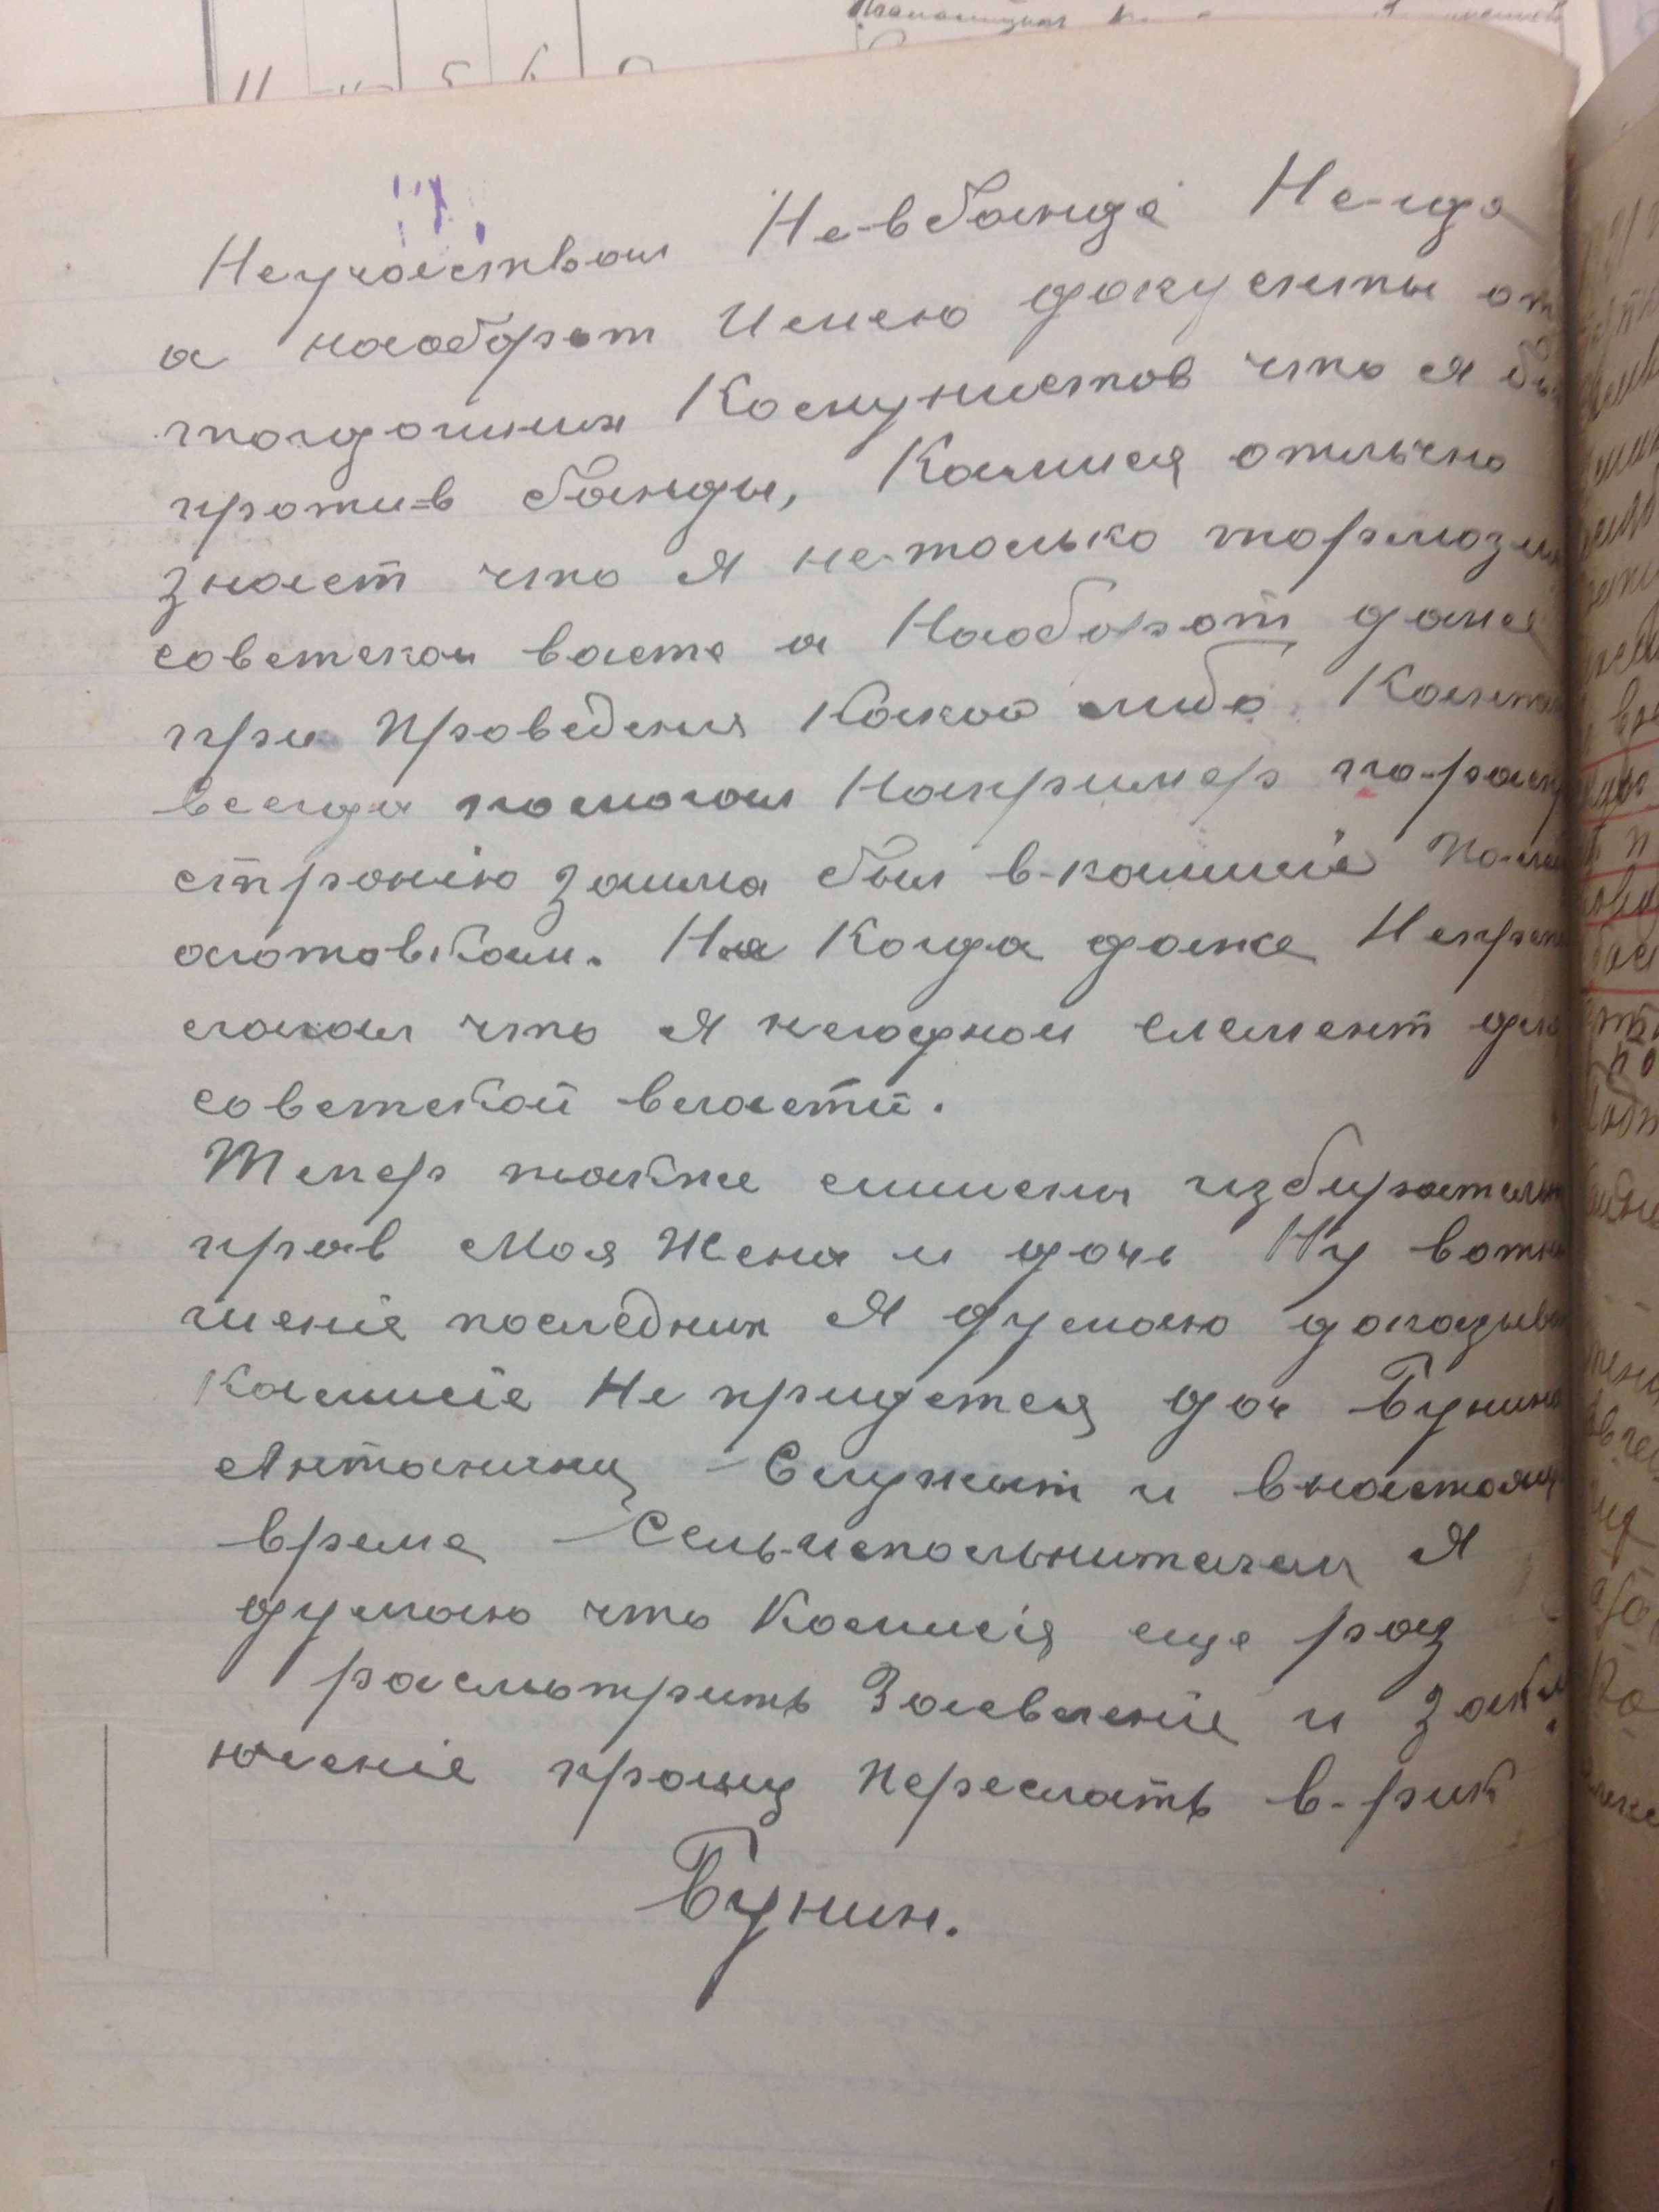 Неучаствовал Не-в банде Не-где
а наоборот Имею документы от
тогдашних Комунистов что я бы
проти-в банды, Камисия отлично
знает что я не-только тормозил
советскои васте а Наоборот даже
при Проведения Какой либо Кампа
всегда помогал Например по-расп
стронiю Займа был в-камисiе По-
аготовкам. Не Когда даже Непре
сгагал что я негоднои елемент для
советской власти.
Тепер также лишены избирательн
прав Моя Жена и дочь Ну вотн
шенiе последних Я думаю догазыв
Камисiе Не придется доч Бунина
Антанину Служыт и внастоящ
време Сель-испольнителем Я
думаю что Комисiя еще раз
расмотрить Заевленiе и Закл
юченiе прошу Переслать в-рик
Бунин.